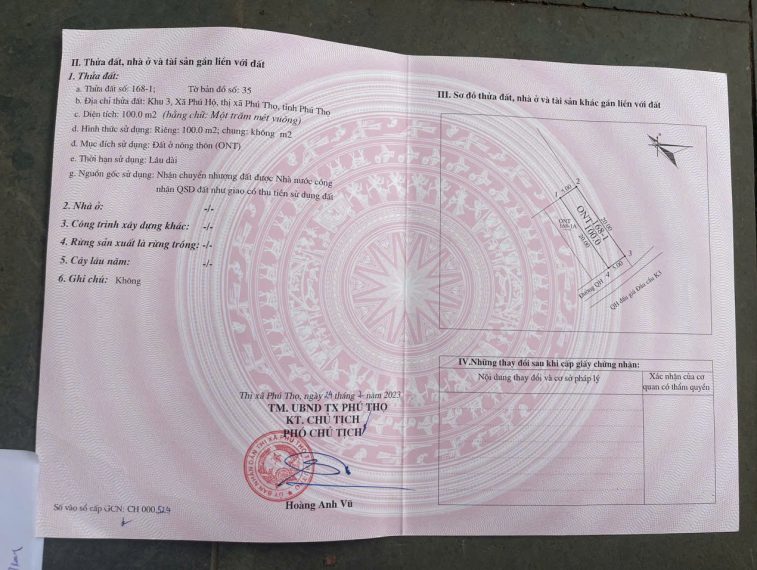 II. Thửa đất, nhà ở và tài sản gắn liền với đất
1. Thửa đất:
a. Thửa đất số: 168-1; Tờ bản đồ số: 35
b. Địa chỉ thửa đất: Khu 3, Xã Phú Hộ, thị xã Phú Thọ, tỉnh Phú Thọ
c. Diện tích: 100.0 m2 (bằng chữ: Một trăm mét vuông)
d. Hình thức sử dụng: Riêng: 100.0 m2; chung: không m2
đ. Mục đích sử dụng: Đất ở nông thôn (ONT)
e. Thời hạn sử dụng: Lâu dài
g. Nguồn gốc sử dụng: Nhận chuyển nhượng đất được Nhà nước công
nhận QSD đất như giao có thu tiền sử dụng đất
2. Nhà ở: -/-
3. Công trình xây dựng khác: -/-
4. Rừng sản xuất là rừng trồng: -/-
5. Cây lâu năm: -/-
6. Ghi chú: Không
Thị xã Phú Thọ, ngày tháng 2 năm 2023
TM. UBND TX PHÚ THỌ
KT. CHỦ TỊCH
PHÓ CHỦ TỊCH
ỦY BAN NHÂN DÂN THỊ XÃ PHÚ THỌ
Hoàng Anh Vũ
Số vào sổ cấp GCN: CH 000524
III. Sơ đồ thửa đất, nhà ở và tài sản khác gắn liền với đất
1 5.00 2
ONT 168-1
100.0
20.00
ONT
168-1A
20.00
4 5.00 3
Đường QH
QH đấu giá Đầu cầu K3
IV.Những thay đổi sau khi cấp giấy chứng nhận:
Nội dung thay đổi và cơ sở pháp lý
Xác nhận của cơ
quan có thẩm quyền